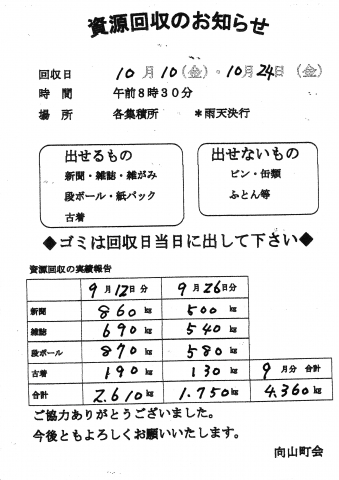 資源回収のお知らせ
回収日 10月10(金)・10月24日(金)
時間 午前8時30分
場所 各集積所 *雨天決行
出せるもの
新聞・雑誌・雑がみ
段ボール・紙パック
古着
出せないもの
ビン・缶類
ふとん等
◆ゴミは回収日当日に出して下さい◆
資源回収の実績報告
9月12日分 9月26日分
新聞 860kg 500kg
雑誌 690kg 540kg
段ボール 870kg 580kg
古着 190kg 130kg 9月分 合計
合計 2.610kg 1.750kg 4.360kg
ご協力ありがとうございました。
今後ともよろしくお願いいたします。
向山町会